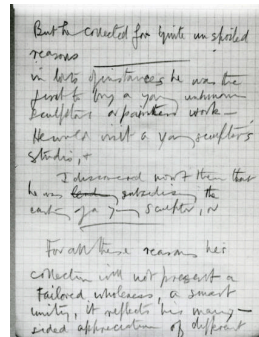 But he collected for quite unspoiled
reasons
in lots of instances he was the
first to buy a young unknown
sculptors or painters work —
He would visit a young sculptor's
studio, +
I discovered now & then that
he was subsidising the
casting of a young sculptor, or
For all these reasons his
collection will not present a
Tailored wholeness, a smart
unity, it reflects his many-
sided appreciation of different